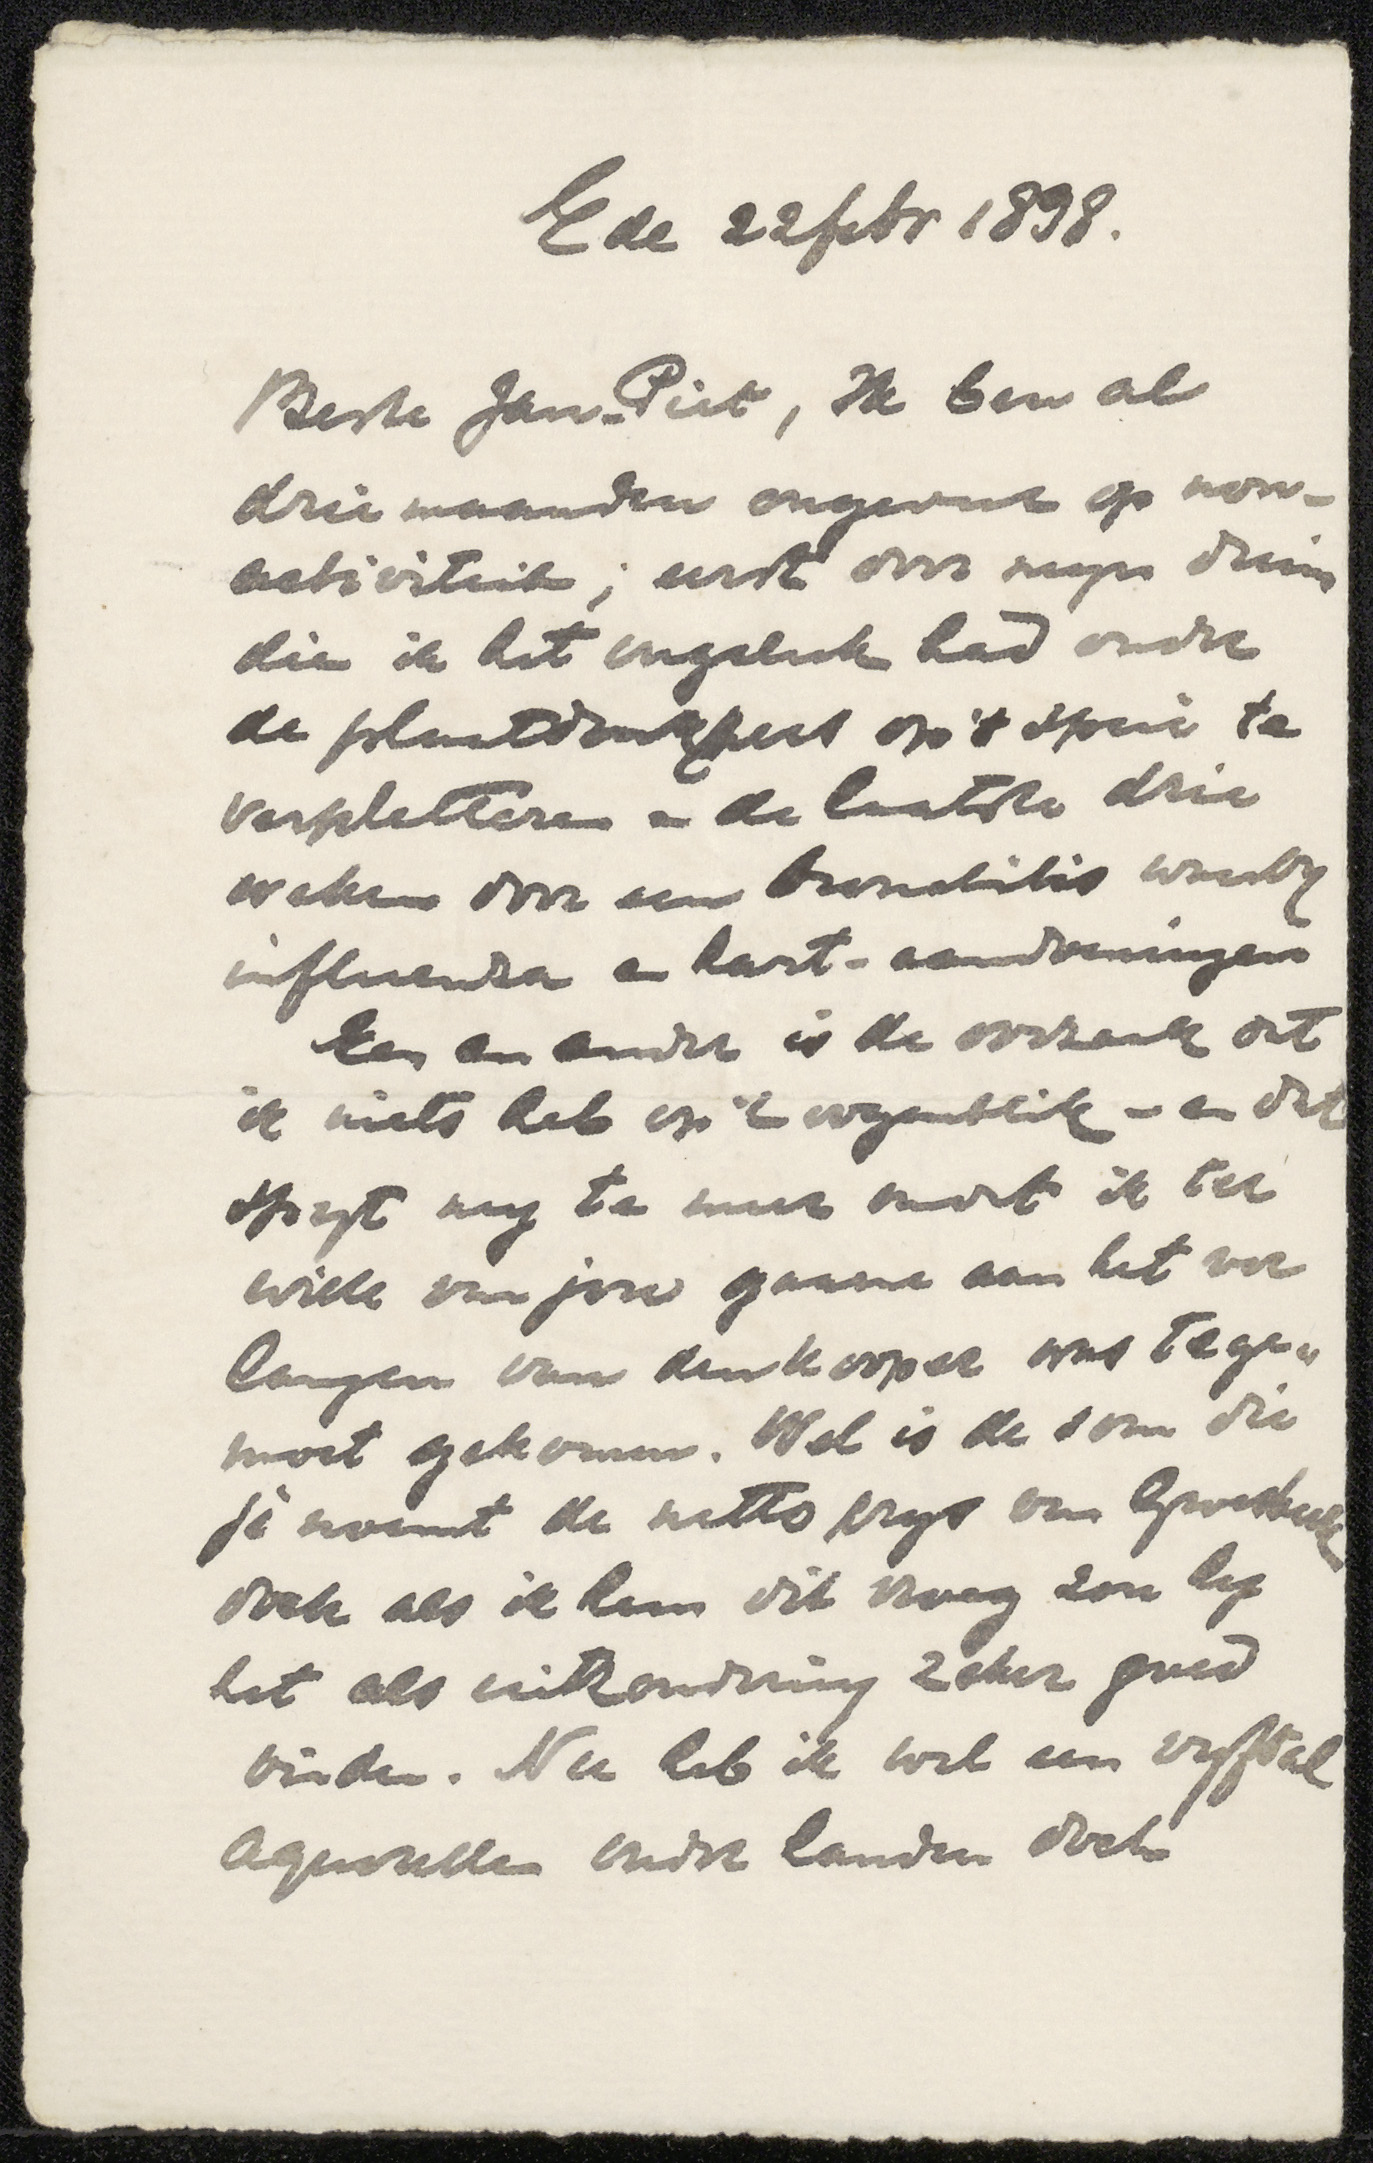 Ede 22 febr 1898.
Beste Jan-Piet, Ik ben al
drie maanden ongeveer op non-
activiteit; eerst door mijn duim
die ik het ongeluk had onder
de plaatdrukpers op 't spui te
verpletteren en de laatste drie
weken door een bronchitis waarby
influenza en hart-aandoeningen
Een en ander is de oorzaak dat
ik niets heb op 't oogenblik - en dat
spijt my te meer omdat ik ter
wille van jou gaarne aan het ver
langen van den kooper was tege„
moet gekomen. Wel is de som die
je noemt de netto prijs van
doch als ik hem dit vroeg zou hy
het als uitzondering zeker goed
vinden. Nu heb ik wel een vyftal
aquarellen onder handen doch